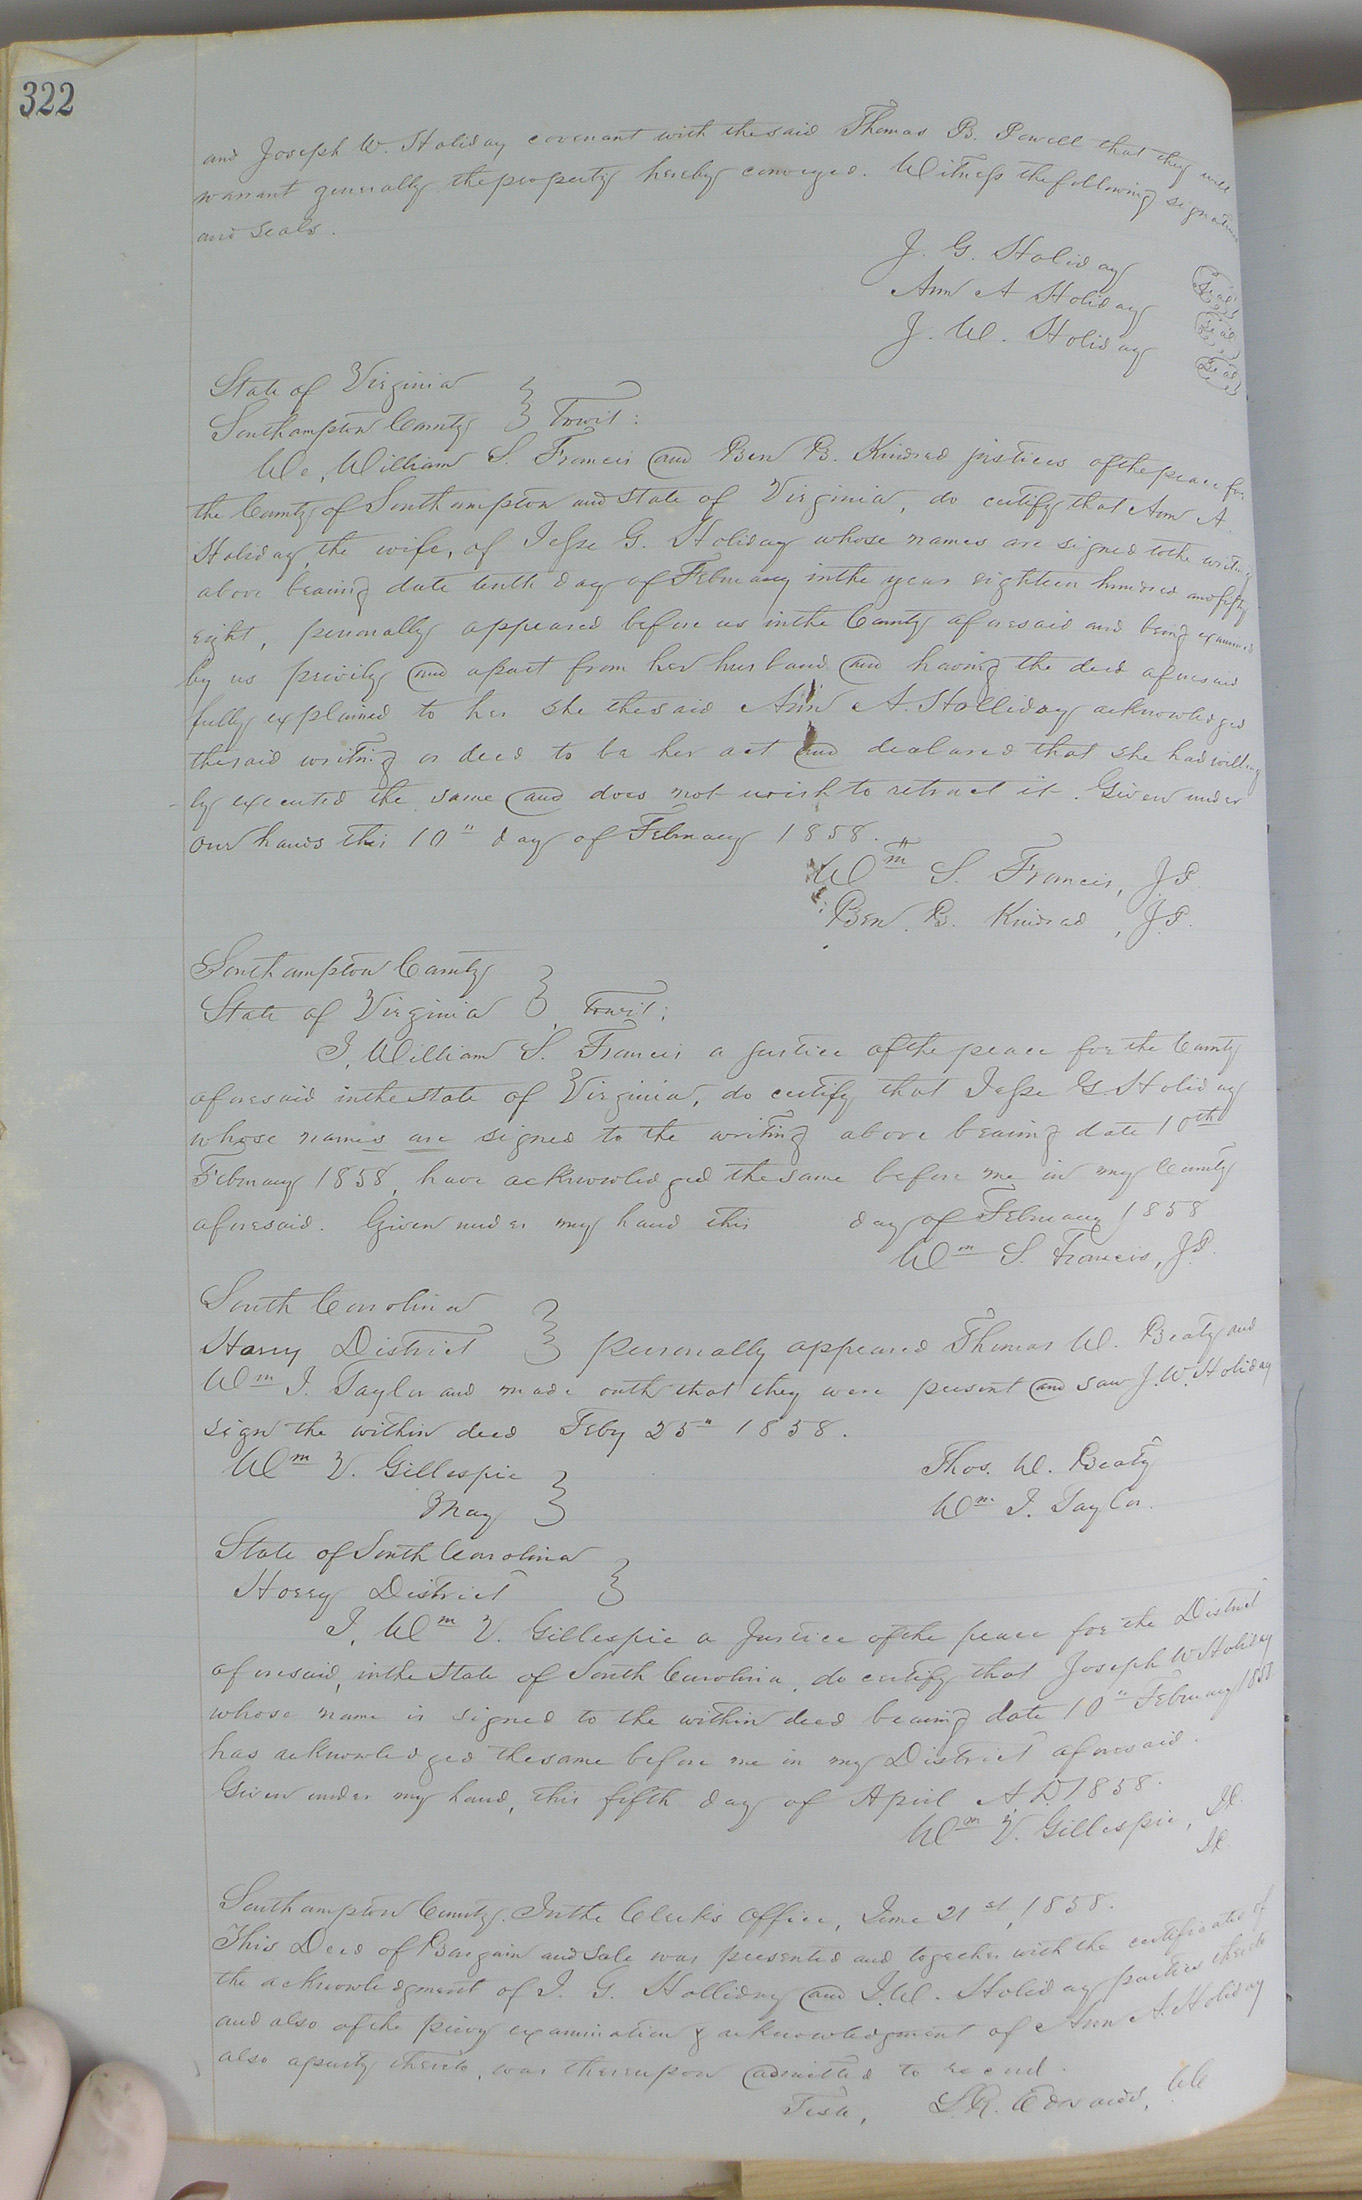 322
and Joseph W. Holiday covenant with the said Thomas B. Powell that they will
warrant generally the property hereby conveyed. Witness the following signatures
and seals.
J. G. Holiday Seal
Ann A Holiday Seal
J. W. Holiday Seal
State of Virginia
Southampton County } Towit:
We, William S. Francis and Ben B. Kindred justices of the peace for
the County of Southampton and State of Virginia, do certify that Ann A.
Holiday, the wife, of Jesse G. Holiday whose names are signed to the writing
above bearing date tenth day of February in the year eighteen hundred and fifty
eight, personally appeared before us in the County aforesaid and being examined
by us privily and apart from her husband and having the deed aforesaid
fully explained to her she the said Ann A. Holliday acknowledged
the said writing or deed to be her act and declared that she had willing
-ly executed the same and does not wish to retract it. Given under
our hands this 10" day of February 1858.
Wm S. Francis, J.P.
Ben. B. Kindred, J.P.
Southampton County
State of Virginia } Towit:
I, William S. Francis a justice of the peace for the County
aforesaid in the State of Virginia, do certify that Jesse G. Holiday
whose names are signed to the writing above bearing date 10th
February 1858, have acknowledged the same before me in my County
aforesaid. Given under my hand this day of February 1858
Wm S. Francis, J.P.
South Carolina
Harry District } personally appeared Thomas W. Beaty and
Wm J. Taylor and made outh that they were present and saw J. W. Holiday
sign the within deed Feby 25" 1858.
Wm V. Gillespie } Thos. W. Beaty
May } Wm J. Taylor.
State of South Carolina
Horry District }
I, Wm V. Gillespie a Justice of the peace for the District
aforesaid, in the State of South Carolina, do certify that Joseph W Holiday
whose name is signed to the within deed bearing date 10" February 1858
has acknowledged the same before me in my District aforesaid.
Given under my hand, this fifth day of April A.D 1858.
Wm V. Gillespie,
Southampton County. In the Clerk's Office, June 21st, 1858.
This Deed of Bargain and Sale was presented and together with the certificates of
the acknowledgment of J. G. Holliday and J. W. Holiday parties thereto
and also of the privy examination & acknowledgment of Ann A. Holiday
also a party thereto, was thereupon admitted to record.
Teste, L. R. Edwards,